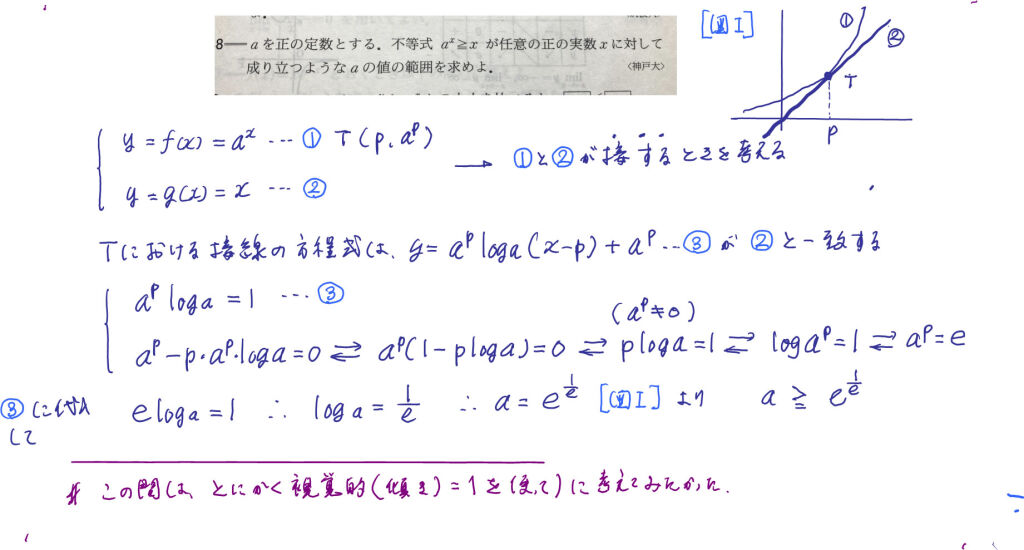 8— aを正の定数とする．不等式 aˣ≧x が任意の正の実数xに対して
成り立つようなaの値の範囲を求めよ．〈神戸大〉
[図I]
①
②
T
P
y = f(x) = aˣ … ① T(p, aᵖ)
y = g(x) = x … ②
→ ①と②が接するときを考える
Tにおける接線の方程式は、y = aᵖ log a (x-p) + aᵖ … ③ が ② と一致する
aᵖ log a = 1 … ③
(aᵖ ≠ 0)
aᵖ - p・aᵖ・log a = 0 ⇄ aᵖ(1 - p log a) = 0 ⇄ p log a = 1 ⇄ log aᵖ = 1 ⇄ aᵖ = e
③ に代入して e log a = 1 ∴ log a = 1/e ∴ a = e^(1/e) [図I] より a ≧ e^(1/e)
# この問は、とにかく視覚的(傾き) = 1 を使って)に考えてみたかった.